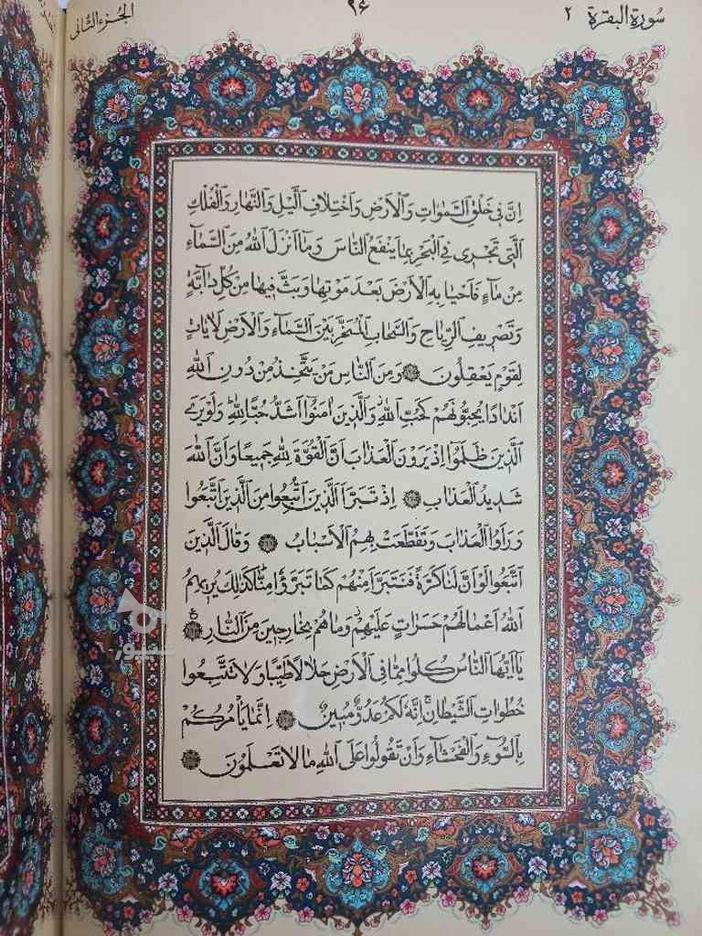 سورة البقرة ٢
٢٤
الجزء الثاني
اِنَّ فی خَلْقِ السَّمٰوَاتِ وَالْاَرْضِ وَاخْتِلَافِ الَّيْلِ وَالنَّهَارِ وَالْفُلْكِ
الَّتی تَجْری فِی الْبَحْرِ بِمَا يَنْفَعُ النَّاسَ وَمَا اَنْزَلَ اللّٰهُ مِنَ السَّمَآءِ
مِنْ مَآءٍ فَاَحْيَا بِهِ الْاَرْضَ بَعْدَ مَوْتِهَا وَبَثَّ فيهَا مِنْ كُلِّ دَآبَّةٍ
وَتَصْريفِ الرِّيَاحِ وَالسَّحَابِ الْمُسَخَّرِ بَيْنَ السَّمَآءِ وَالْاَرْضِ لَاٰيَاتٍ
لِقَوْمٍ يَعْقِلُونَ وَمِنَ النَّاسِ مَنْ يَتَّخِذُ مِنْ دُونِ اللّٰهِ
اَنْدَادًا يُحِبُّونَهُمْ كَحُبِّ اللّٰهِ وَالَّذينَ اٰمَنُوا اَشَدُّ حُبًّا لِلّٰهِ وَلَوْ يَرَی
الَّذينَ ظَلَمُوا اِذْ يَرَوْنَ الْعَذَابَ اَنَّ الْقُوَّةَ لِلّٰهِ جَميعًا وَاَنَّ اللّٰهَ
شَديدُ الْعَذَابِ اِذْ تَبَرَّاَ الَّذينَ اتُّبِعُوا مِنَ الَّذينَ اتَّبَعُوا
وَرَاَوُا الْعَذَابَ وَتَقَطَّعَتْ بِهِمُ الْاَسْبَابُ وَقَالَ الَّذينَ
اتَّبَعُوا لَوْ اَنَّ لَنَا كَرَّةً فَنَتَبَرَّاَ مِنْهُمْ كَمَا تَبَرَّؤُا مِنَّا كَذٰلِكَ يُريهِمُ
اللّٰهُ اَعْمَالَهُمْ حَسَرَاتٍ عَلَيْهِمْ وَمَا هُمْ بِخَارِجينَ مِنَ النَّارِ
يَا اَيُّهَا النَّاسُ كُلُوا مِمَّا فِی الْاَرْضِ حَلَالًا طَيِّبًا وَلَا تَتَّبِعُوا
خُطُوَاتِ الشَّيْطَانِ اِنَّهُ لَكُمْ عَدُوٌّ مُبينٌ اِنَّمَا يَاْمُرُكُمْ
بِالسُّوٓءِ وَالْفَحْشَآءِ وَاَنْ تَقُولُوا عَلَی اللّٰهِ مَا لَا تَعْلَمُونَ